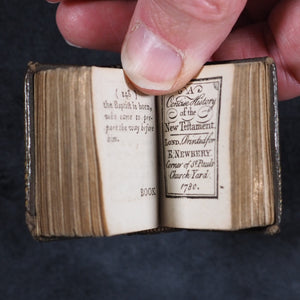 ( 126 )
the Baptist is born,
who came to pre-
pare the way before
him.
BOOK
A
Concise History
of the
New Testament.
LOND. Printed for
E. NEWBERY.
Corner of St. Pauls
Church Yard.
1780.